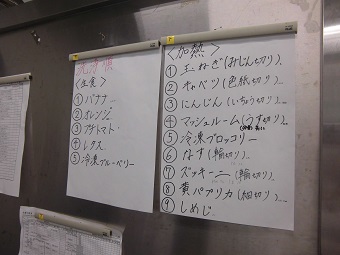 <生食>
① バナナ
② オレンジ
③ プチトマト
④ レタス
⑤ 冷凍ブルーベリー
<加熱>
① 玉ねぎ(みじん切り)
② キャベツ(色紙切り)
③ にんじん(いちょう切り)
④ マッシュルーム(うす切り)
⑤ 冷凍ブロッコリー
⑥ なす(輪切り)
⑦ ズッキーニ(輪切り)
⑧ 黄パプリカ(細切り)
⑨ しめじ